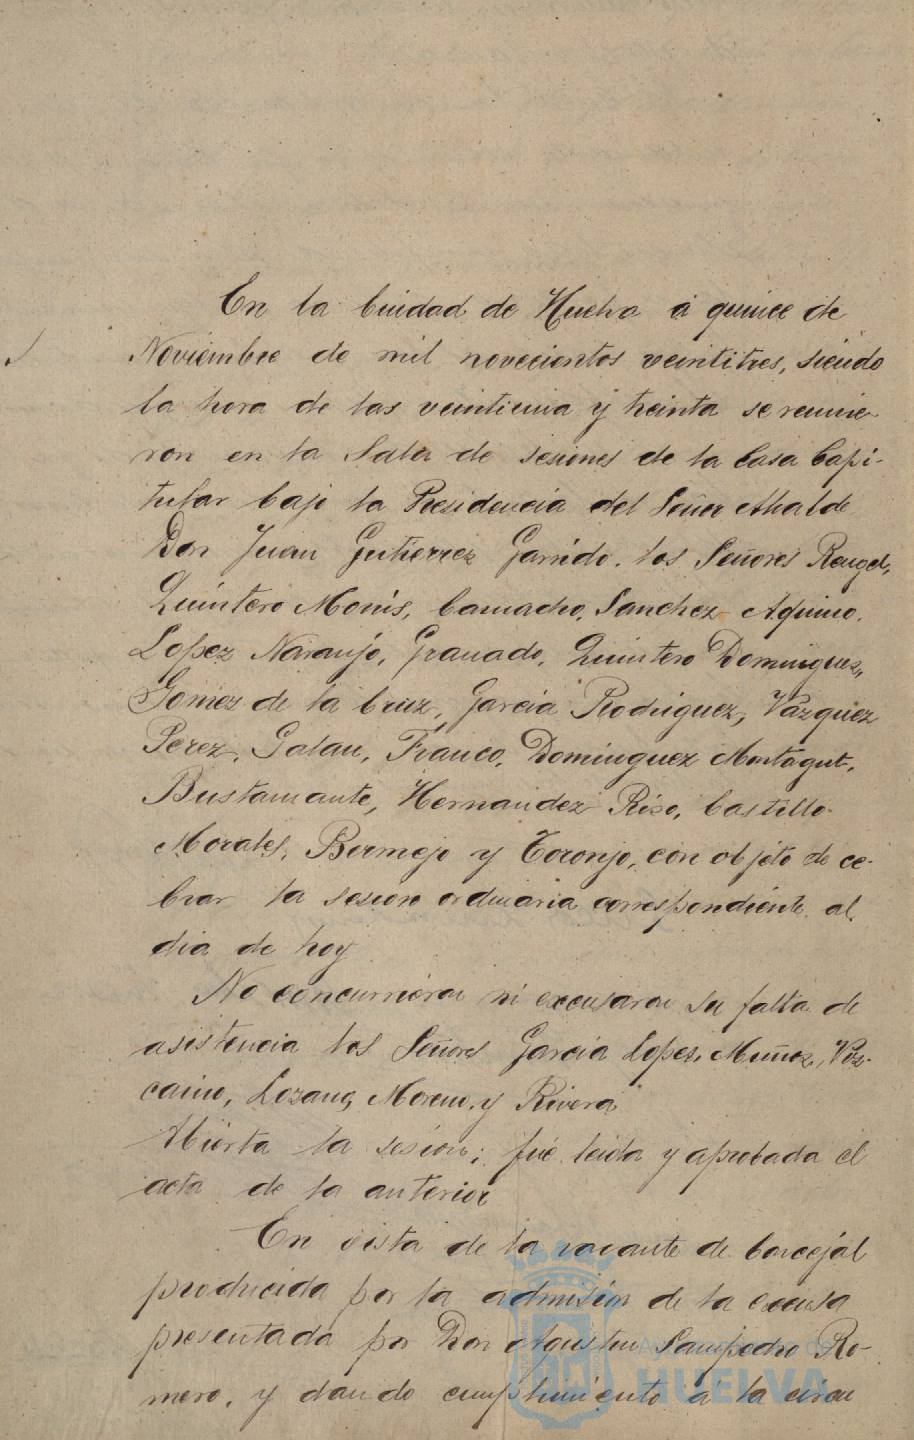 En la Ciudad de Huelva á quince de
Noviembre de mil novecientos veintitres, siendo
la hora de las veintiuna y treinta se reunie-
ron en la Sala de sesiones de la Casa Capi-
tular bajo la Presidencia del Señor Alcalde
Don Juan Gutierrez Garrido. los Señores Rengel,
Quintero Monis, Camacho, Sanchez Aquino.
Lopez Naranjo, Granado, Quintero Dominguez,
Gomez de la Cruz, Garcia Rodriguez, Vazquez
Perez, Galan, Franco, Dominguez Montagut,
Bustamante, Hernandez Rizo, Castillo
Morales, Bermejo y Toronjo, con objeto de ce-
brar la sesion ordinaria correspondiente al
dia de hoy
No concurrieron ni excusaron su falta de
asistencia los Señores Garcia Lopez, Muñoz, Viz-
caino, Lozano, Moreno, y Rivera
Abierta la sesion; fué leida y aprobada el
acta de la anterior
En vista de la vacante de Concejal
producida por la admisión de la excusa
presentada por Don Agustin Sampedro Ro-
mero, y dando cumplimiento á la circu
Ayuntamiento de
HUELVA